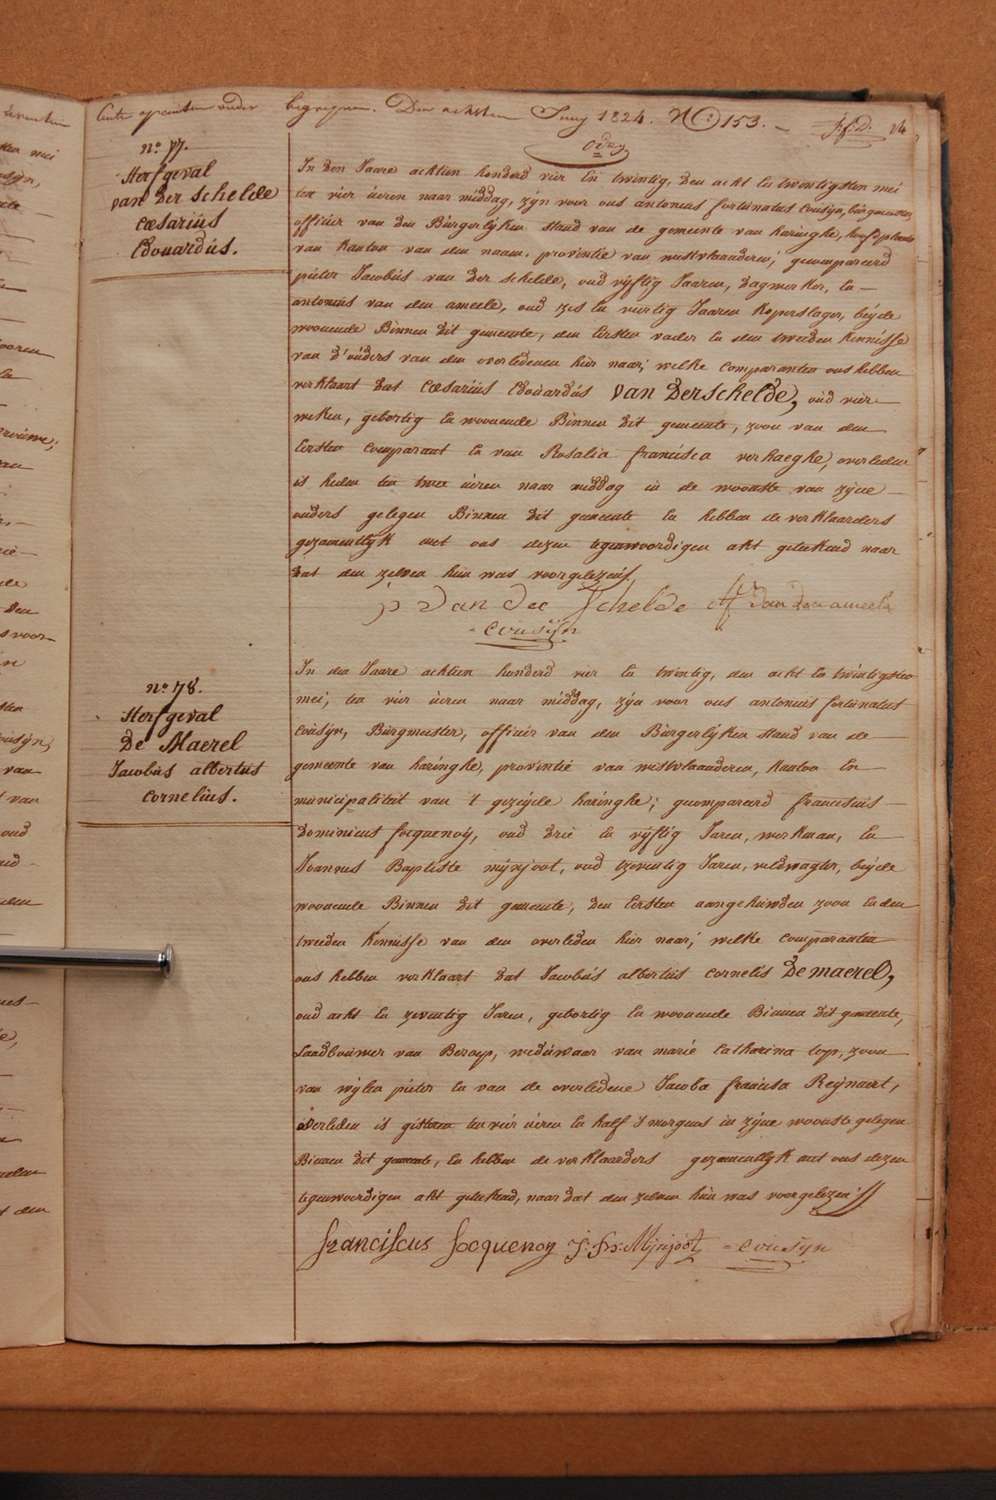 begrepen. Den achsten Juny 1824. N° 153.
n.° 77.
Sterfgeval
van Der Schelde
Cœsariüs
Edouardüs.
In den Jaare achtien honderd vier en twintig, den acht en twintigsten mei
ten vier üeren naar middag, zÿn voor ons antonius fortunatus cousÿn, bürgmeester
officier van den Bürgerlÿken stand van de gemeente van haringhe, hoofdplaats
van kanton van den naam, provintie van westvlaanderen; gecompareerd
pieter Jacobüs van der schelde, oud vÿftig Jaaren, dagwerker, en
antonius van den ameele, oud zes en veertig Jaaren koperslager, beÿde
woonende Binnen dit gemeente, den Eersten vader en den tweeden kennisse
van d'oüders van den overledenen hier naar; welke comparanten ons hebben
verklaart dat cœsariüs Edoüardüs van Der schelde, oüd vier
weken, gebortig en woonende Binnen dit gemeente, zoon van den
Eersten comparant en van Rosalia francisca verhaeghe, overleden
is heden ten twee üeren naar middag in de woonste van zÿne
ouders gelegen Binnen dit gemeente en hebben de verklaarders
gezamentlÿk met ons dezen tegenwoordigen akt geteekend naar
dat den zelven hün was voorgelezen.
p van der Schelde A f van den ameele
cousÿn
n.° 78.
Sterfgeval
De Maerel
Jacobüs albertüs
cornelius.
In den Jaare achtien honderd vier en twintig, den acht en twintigsten
mei, ten vier üeren naar middag, zÿn voor ons antonius fortunatus
cousÿn, Bürgmeester, officier van den Bürgerlÿken stand van de
gemeente van haringhe, provintie van westvlaanderen, kanton en
municipaliteit van 't gezeÿde haringhe; gecompareerd franciscus
dominicus focquenoÿ, oud drie en vÿftig Jaren, werkman, en
Joannes Baptiste mÿnjoot, oud tzeventig Jaren, veldwagter, beÿde
woonende Binnen dit gemeente, den Eersten aangehüwden zoon en den
tweeden kennisse van den overleden hier naar; welke comparanten
ons hebben verklaart dat Jacobüs albertüs cornelis De maerel,
oud acht en zeventig Jaren, gebortig en woonende Binnen dit gemeente,
Landbouwer van Beroep, wedüwaar van marie catharina top, zoon
van wÿlen pieter en van de overledene Jacoba francisca Reÿnaert,
overleden is gisteren ten vier üeren en half s'morgens in zÿne woonste gelegen
Binnen dit gemeente, en hebben de verklaarders gezamentlÿk met ons dezen
tegenwoordigen akt geteekend, naar dat den zelven hün was voorgelezen
franciscus focquenoy J: Bs: Mÿnjoot cousÿn